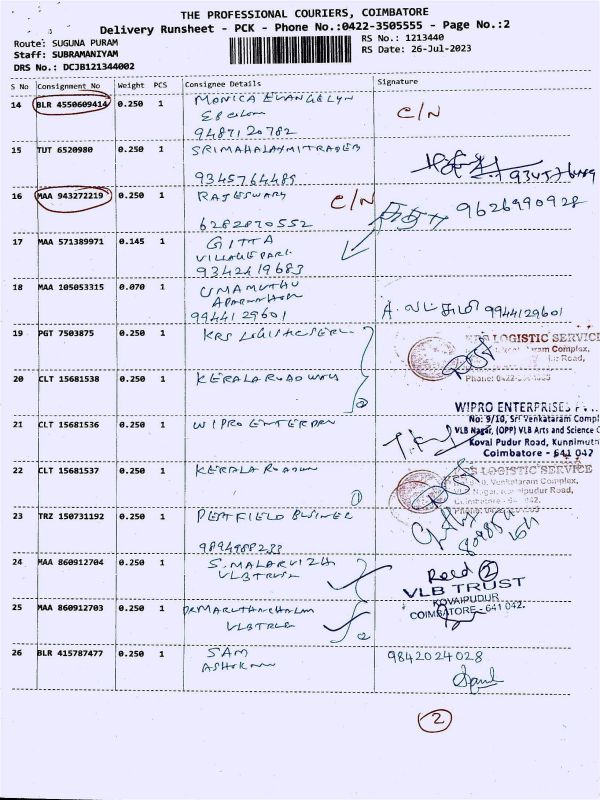 THE PROFESSIONAL COURIERS, COIMBATORE
Delivery Runsheet - PCK - Phone No.:0422-3505555 - Page No.:2
Route: SUGUNA PURAM
Staff: SUBRAMANIYAM
DRS No.: DCJB121344002
RS No.: 1213440
RS Date: 26-Jul-2023
S No Consignment No Weight PCS Consignee Details Signature
14 BLR 4550609414 0.250 1 MONICA EVANGELYN
C/N
9487120782
15 TUT 6520980 0.250 1 SRIMAHALAXMITRADER
9345764489
16 MAA 943272219 0.250 1 RAJESWARY C/N
9626990928
6282870552
17 MAA 571389971 0.145 1 GITTA
VILLAGE PARK
9342419683
18 MAA 105053315 0.070 1 UMAMUTHU
9944129601 9944129601
19 PGT 7503875 0.250 1 KRS LOGISTICSERV
KRS LOGISTIC SERVICE
20 CLT 15681538 0.250 1 KERALA ROADWAYS
2
WIPRO ENTERPRISES
21 CLT 15681536 0.250 1 WIPRO ENTERPRI
No: 9/10, Sri Venkataram Compl
VLB Nagar, (OPP) VLB Arts and Science C
Koval Pudur Road, Kunnimuth
Coimbatore - 641 042
22 CLT 15681537 0.250 1 KERALA ROADWAY
LOGISTIC SERVICE
Venkataram Complex,
Nagar, Kovaipudur Road,
1
23 TRZ 150731192 0.250 1 PEATFIELD BUSINES
9894988233
24 MAA 860912704 0.250 1 S. MALARVIZH
VLBTRUST
Recd 2
VLB TRUST
KOVAIPUDUR
COIMBATORE - 641 042.
25 MAA 860912703 0.250 1 DRMARUTHACHALAM
VLBTRUST
2
26 BLR 415787477 0.250 1 SAM
9842024028
2